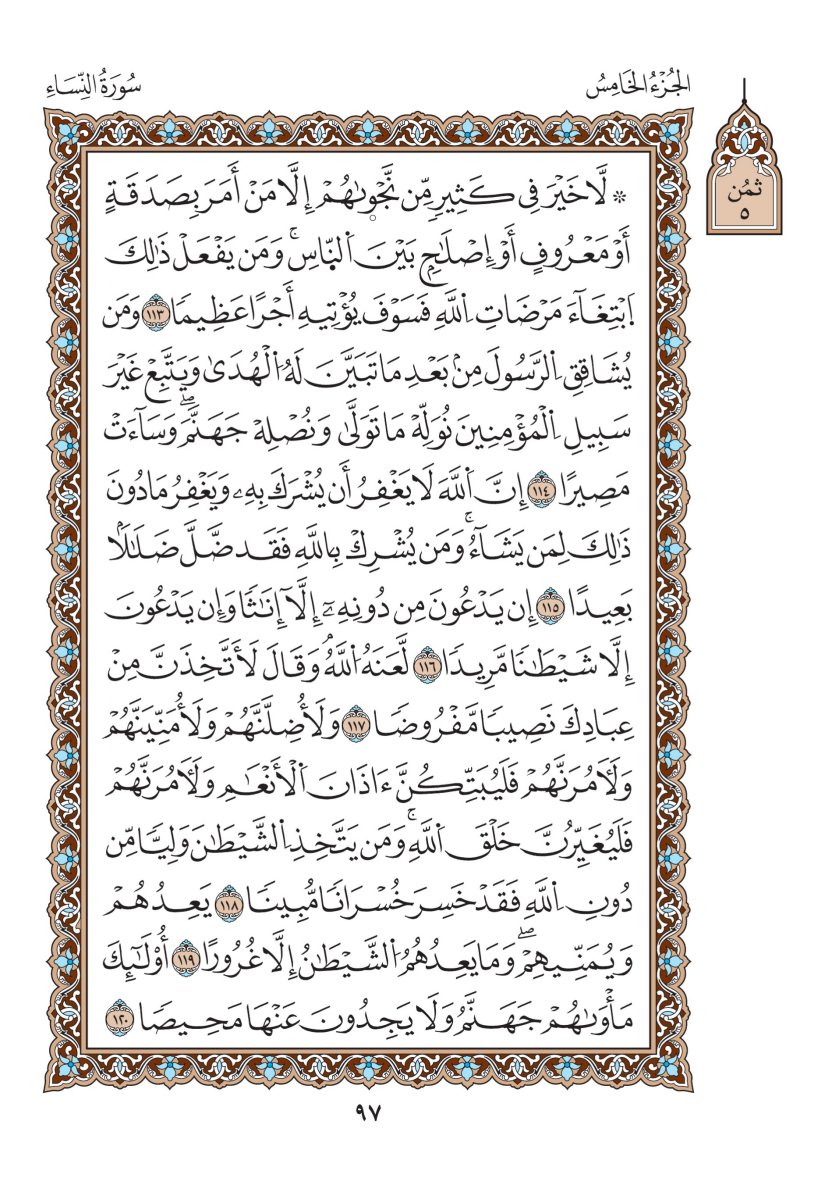 الجُزْءُ الخَامِسُ
سُورَةُ النِّسَاءِ
ثُمُن
٥
۞ لَّا خَيْرَ فِي كَثِيرٖ مِّن نَّجْوىٰهُمْ إِلَّا مَنْ أَمَرَ بِصَدَقَةٍ
أَوْ مَعْرُوفٍ أَوْ إِصْلَٰحِۢ بَيْنَ اَ۬لنَّاسِۖ وَمَن يَفْعَلْ ذَٰلِكَ
اَ۪بْتِغَآءَ مَرْضَاتِ اِ۬للَّهِ فَسَوْفَ يُؤْتِيهِ أَجْرًا عَظِيمٗا ١١٣ وَمَن
يُشَاقِقِ اِ۬لرَّسُولَ مِنۢ بَعْدِ مَا تَبَيَّنَ لَهُ اُ۬لْهُدَىٰ وَيَتَّبِعْ غَيْرَ
سَبِيلِ اِ۬لْمُؤْمِنِينَ نُوَلِّهْ مَا تَوَلَّىٰ وَنُصْلِهْ جَهَنَّمَۖ وَسَآءَتْ
مَصِيرًا ١١٤ إِنَّ اَ۬للَّهَ لَا يَغْفِرُ أَن يُشْرَكَ بِهِۦ وَيَغْفِرُ مَا دُونَ
ذَٰلِكَ لِمَن يَشَآءُۚ وَمَن يُشْرِكْ بِاللَّهِ فَقَد ضَّلَّ ضَلَٰلَۢا
بَعِيدًا ١١٥ إِن يَدْعُونَ مِن دُونِهِۦٓ إِلَّآ إِنَٰثٗا وَإِن يَدْعُونَ
إِلَّا شَيْطَٰنٗا مَّرِيدٗا ١١٦ لَّعَنَهُ اُ۬للَّهُۘ وَقَالَ لَأَتَّخِذَنَّ مِنْ
عِبَادِكَ نَصِيبٗا مَّفْرُوضٗا ١١٧ وَلَأُضِلَّنَّهُمْ وَلَأُمَنِّيَنَّهُمْ
وَلَأٓمُرَنَّهُمْ فَلَيُبَتِّكُنَّ ءَاذَانَ اَ۬لْأَنْعَٰمِ وَلَأٓمُرَنَّهُمْ
فَلَيُغَيِّرُنَّ خَلْقَ اَ۬للَّهِۚ وَمَن يَتَّخِذِ اِ۬لشَّيْطَٰنَ وَلِيّٗا مِّن
دُونِ اِ۬للَّهِ فَقَدْ خَسِرَ خُسْرَانٗا مُّبِينٗا ١١٨ يَعِدُهُمْ
وَيُمَنِّيهِمْۖ وَمَا يَعِدُهُمُ اُ۬لشَّيْطَٰنُ إِلَّا غُرُورًا ١١٩ أُوْلَٰٓئِكَ
مَأْوىٰهُمْ جَهَنَّمُ وَلَا يَجِدُونَ عَنْهَا مَحِيصٗا ١٢٠
٩٧